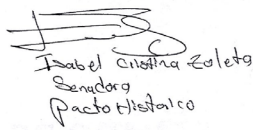 Isabel Cristina Zuleta
Senadora
Pacto Histórico